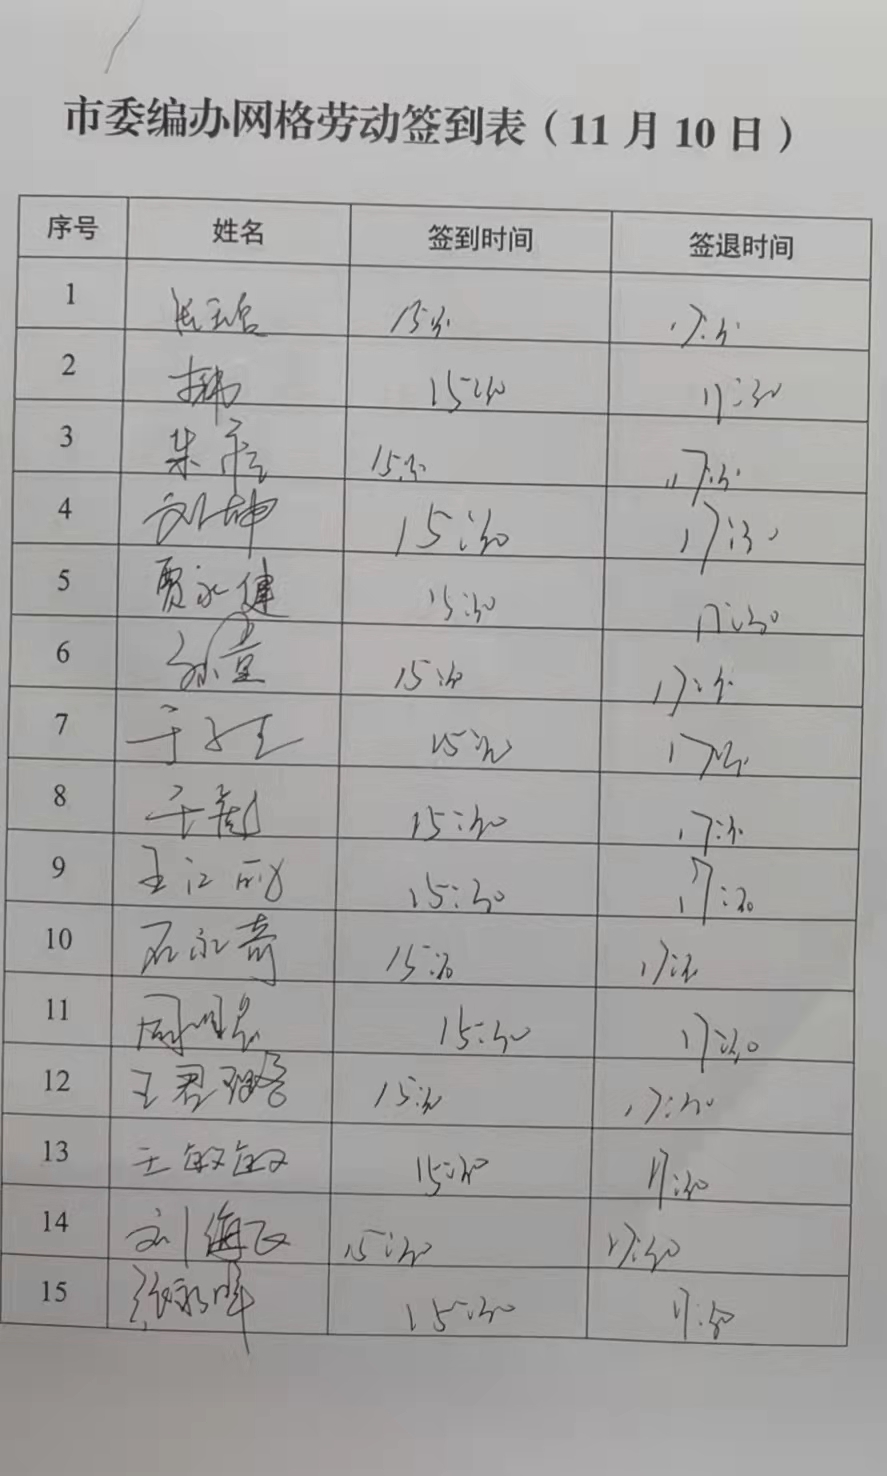 市委编办网格劳动签到表（11月10日）
序号 姓名 签到时间 签退时间
1 15:30 17:30
2 15:30 17:30
3 朱 15:30 17:30
4 刘坤 15:30 17:30
5 贾永健 15:30 17:30
6 孙萱 15:30 17:30
7 于 15:30 17:30
8 于彪 15:30 17:30
9 王江 15:30 17:30
10 石永奇 15:30 17:30
11 周 15:30 17:30
12 王君璐 15:30 17:30
13 王敏敏 15:30 17:30
14 刘海飞 15:30 17:30
15 张 15:30 17:30